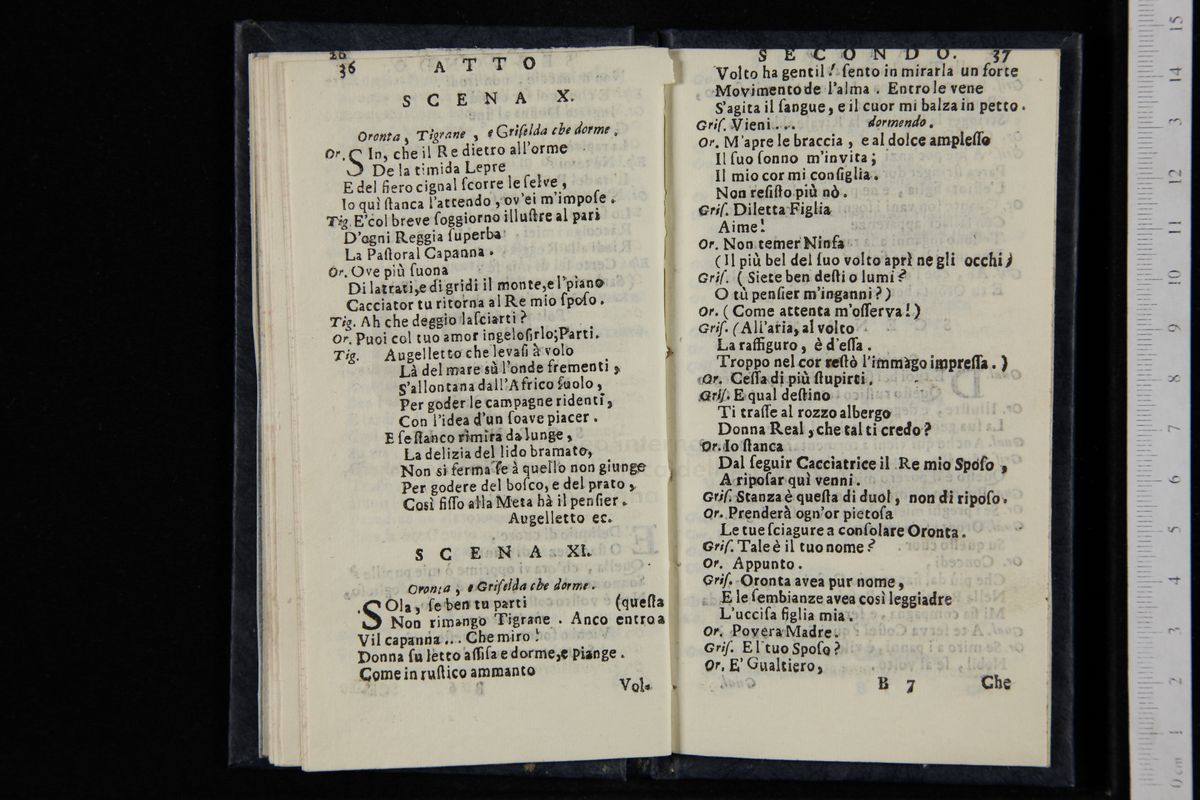 36
A T T O
S C E N A X.
Oronta, Tigrane, e Griſelda che dorme.
Or. SIn, che il Re dietro all'orme
De la timida Lepre
E del fiero cignal ſcorre le ſelve,
Io quì ſtanca l'attendo, ov'ei m'impoſe.
Tig. E'col breve ſoggiorno illuſtre al pari
D'ogni Reggia ſuperba
La Paſtoral Capanna.
Or. Ove più ſuona
Di latrati,e di gridi il monte,e l'piano
Cacciator tu ritorna al Re mio ſpoſo.
Tig. Ah che deggio laſciarti?
Or. Puoi col tuo amor ingeloſirlo;Parti.
Tig. Augelletto che levaſi à volo
Là del mare sù l'onde frementi,
S'allontana dall'Africo ſuolo,
Per goder le campagne ridenti,
Con l'idea d'un ſoave piacer.
E ſe ſtanco rimira da lunge,
La delizia del lido bramato,
Non si ferma ſe à quello non giunge
Per godere del boſco, e del prato,
Così fiſſo alla Meta hà il penſier.
Augelletto ec.
S C E N A XI.
Oronta, e Griſelda che dorme.
SOla, ſe ben tu parti (queſta
Non rimango Tigrane. Anco entro a
Vil capanna... Che miro!
Donna ſu letto aſſiſa e dorme,e piange.
Come in ruſtico ammanto
Vol-
S E C O N D O. 37
Volto ha gentil! ſento in mirarla un forte
Movimento de l'alma. Entro le vene
S'agita il ſangue, e il cuor mi balza in petto.
Griſ. Vieni... dormendo.
Or. M'apre le braccia, e al dolce ampleſſo
Il ſuo ſonno m'invita;
Il mio cor mi conſiglia.
Non reſiſto più nò.
Griſ. Diletta Figlia
Aime!
Or. Non temer Ninfa
(Il più bel del ſuo volto aprì negli occhi)
Griſ. (Siete ben deſti o lumi?
O tù penſier m'inganni?)
Or. (Come attenta m'oſſerva!)
Griſ. (All'aria, al volto
La raffiguro, è d'eſſa.
Troppo nel cor reſtò l'immago impreſſa.)
Or. Ceſſa di più ſtupirti.
Griſ. E qual deſtino
Ti traſſe al rozzo albergo
Donna Real, che tal ti credo?
Or. Io ſtanca
Dal ſeguir Cacciatrice il Re mio Spoſo,
A ripoſar quì venni.
Griſ. Stanza è queſta di duol, non di ripoſo.
Or. Prenderà ogn'or pietoſa
Le tue ſciagure a conſolare Oronta.
Griſ. Tale è il tuo nome?
Or. Appunto.
Griſ. Oronta avea pur nome,
E le ſembianze avea così leggiadre
L'ucciſa figlia mia.
Or. Povera Madre.
Griſ. E l'tuo Spoſo?
Or. E' Gualtiero,
B 7 Che